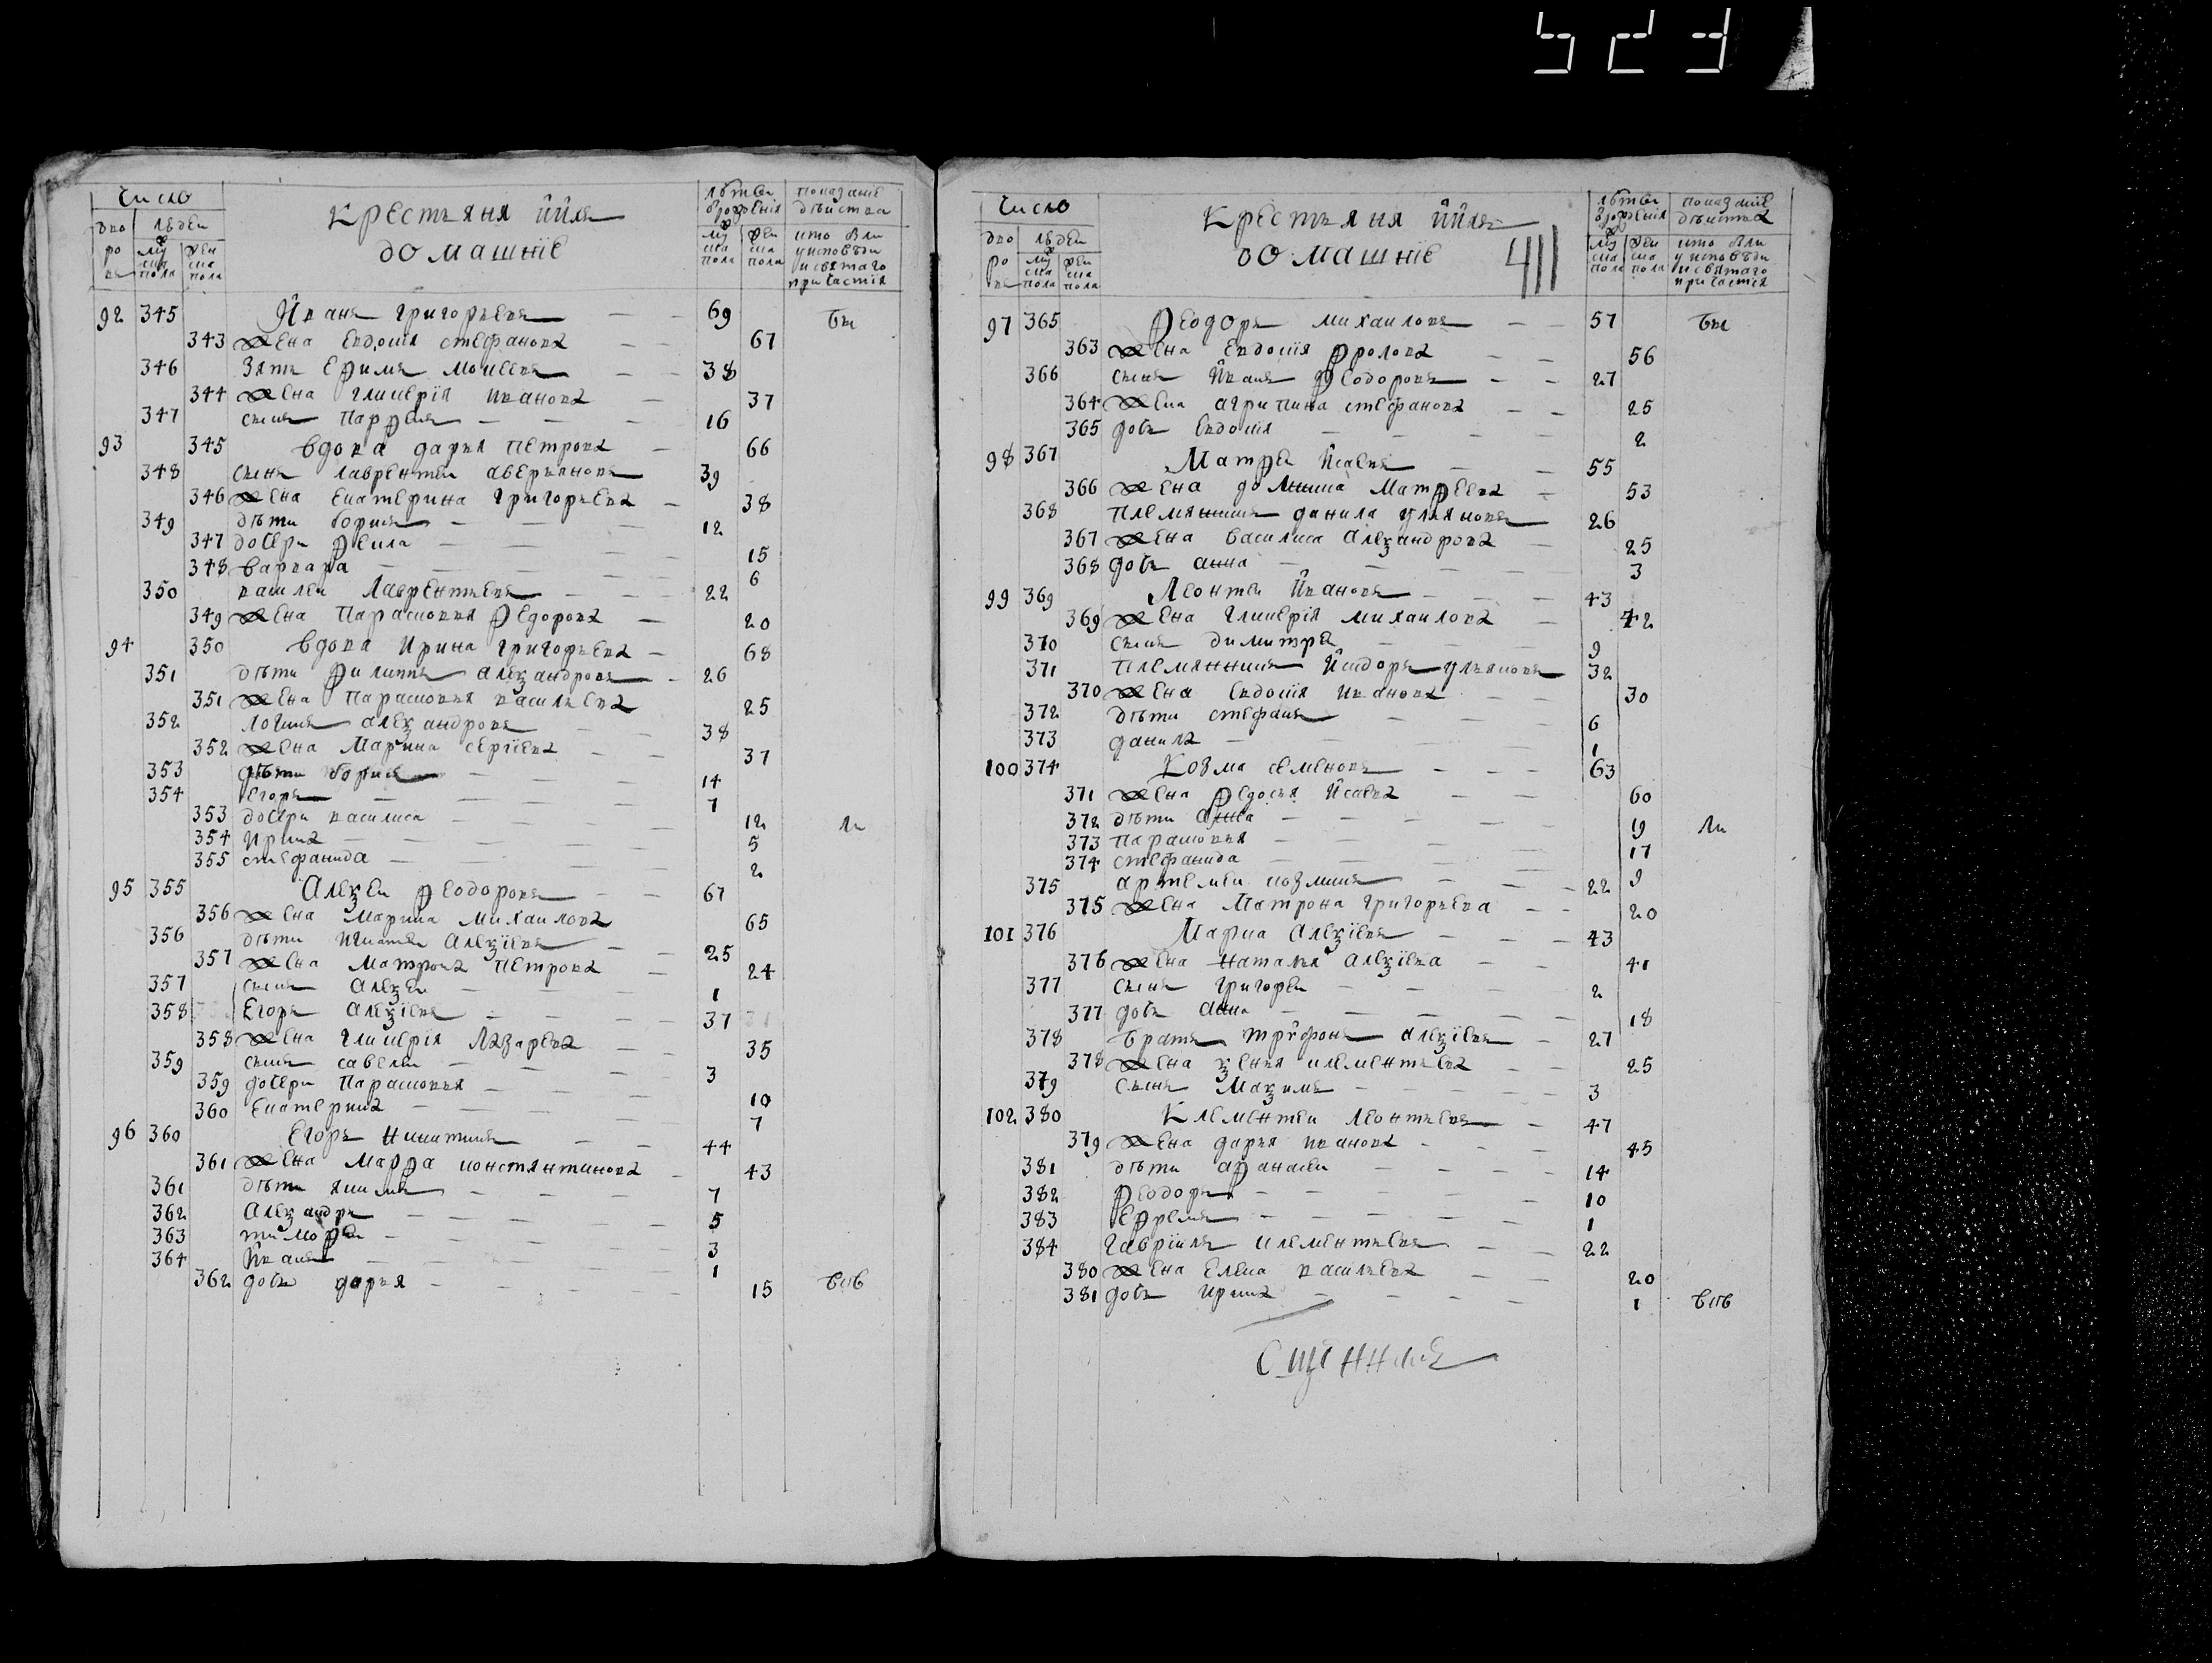 523
Число
Крестьяня ийхъ
домашніе
лѣтъ
врожденія
показаніе
дѣйства
дво
ро
въ
людеи
муска пола
женска пола
муска пола
женска пола
кто были
у исповѣди
и святаго
причастія
92 345 Иванъ григорьевъ 69 бы
343 жена евдокія стефанова 67
346 Зять ефимъ моисеевъ 38
344 жена гликерія иванова 37
347 сынъ парфенъ 16
93 345 вдова дарья петрова 66
348 сынъ лаврентеи аверьяновъ 39
346 жена екатерина григорьева 38
349 дѣти борисъ 12
347 дочери фекла 15
348 варвара 6
350 василеи лаврентьевъ 22
349 жена парасковья федорова 20
94 350 вдова ирина григорьева 68
351 дѣти филиппъ алеѯандровъ 26
351 жена парасковья васильева 25
352 логинъ алеѯандровъ 38
352 жена марина сергіева 37
353 дѣти борисъ 14
354 егоръ 7
353 дочери василиса 12 ли
354 ирина 5
355 стефанида 2
95 355 Алеѯеи феодоровъ 67
356 жена марина михаилова 65
356 дѣти игнатеи алеѯіевъ 25
357 жена матрона петрова 24
357 сынъ алеѯеи 1
358 егоръ алеѯіевъ 37
358 жена гликерія лазарева 35
359 сынъ савелеи 3
359 дочери парасковья 10
360 екатерина 7
96 360 Егоръ никитинъ 44
361 жена марфа константинова 43
361 дѣти якимъ 7
362 алеѯандръ 5
363 тимофеи 3
364 иванъ 1
362 дочь дарья 15 всѣ
Число
Крестьяня ийхъ
домашніе
411
лѣтъ
врожденія
показаніе
дѣйства
дво
ро
въ
людеи
муска пола
женска пола
муска пола
женска пола
кто были
у исповѣди
и святаго
причастія
97 365 Феодоръ михаиловъ 57 бы
363 жена евдокія фролова 56
366 сынъ иванъ феодоровъ 27
364 жена агрипина стефанова 25
365 дочь евдокія 2
98 367 Матфеи исаевъ 55
366 жена домника матфеева 53
368 племянникъ данила ульяновъ 26
367 жена василиса алеѯандрова 25
368 дочь анна 3
99 369 Леонтеи ивановъ 43
369 жена гликерія михаилова 42
370 сынъ димитреи 9
371 племянникъ исидоръ ульяновъ 32
370 жена евдокія иванова 30
372 дѣти стефанъ 6
373 данила 1
100 374 Козма семеновъ 63
371 жена федосья исаева 60
372 дѣти анна 19 ли
373 парасковья 17
374 стефанида 9
375 артемеи козминъ 22
375 жена матрона григорьева 20
101 376 Марка алеѯіевъ 43
376 жена наталья алеѯіева 41
377 сынъ григореи 2
377 дочь анна 18
378 братъ трифонъ алеѯіевъ 27
378 жена ѯенья клементьева 25
379 сынъ маѯимъ 3
102 380 Клементеи леонтьевъ 47
379 жена дарья иванова 45
381 дѣти афанасеи 14
382 феодоръ 10
383 ефремъ 1
384 гавріилъ клементьевъ 22
380 жена елена васильева 20
381 дочь ирина 1 всѣ
Сщенникъ